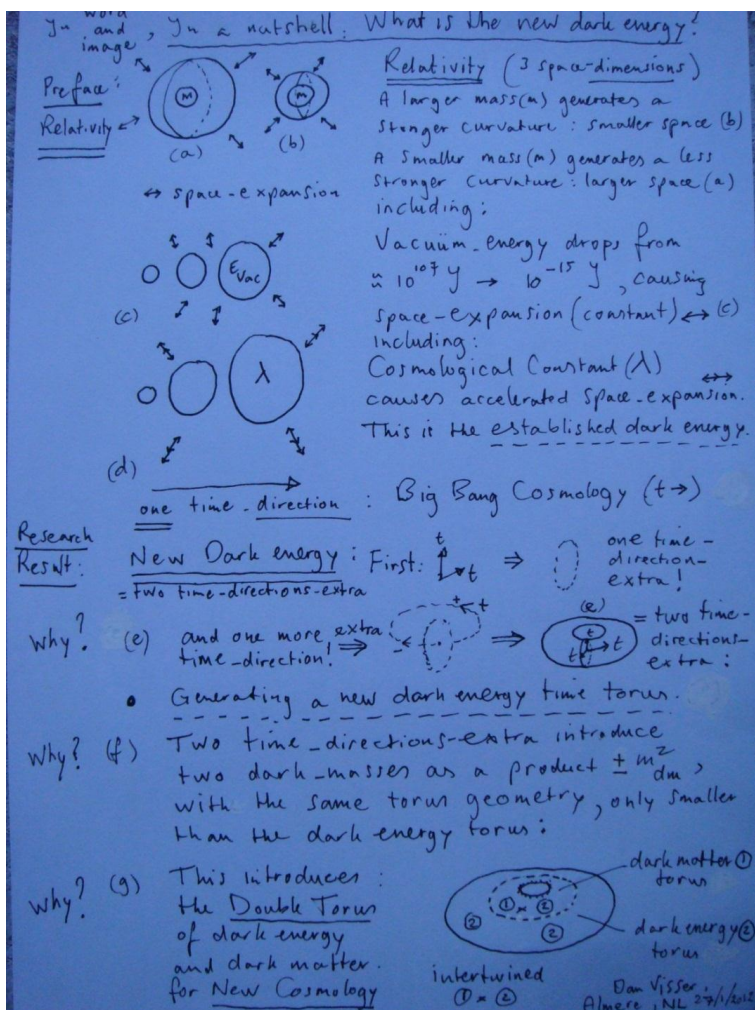 In word and image, In a nutshell: What is the new dark energy?
Preface:
Relativity
M
(a)
M
(b)
↔ space-expansion
Relativity (3 space-dimensions)
A larger mass(m) generates a
stonger curvature: smaller space (b)
A smaller mass(m) generates a less
stronger curvature: larger space (a)
including:
Vacuüm-energy drops from
≈ 10^107 J → 10^-15 J, causing
space-expansion (constant) ↔ (c)
including:
Cosmological Constant (λ)
causes accelerated space-expansion.
This is the established dark energy.
Evac
(c)
λ
(d)
one time-direction : Big Bang Cosmology (t→)
Research
Result:
New Dark energy: First: t t ⇒ one time-
direction-
extra!
= two time-directions-extra
Why? (e) and one more extra
time-direction! ⇒ + t - ⇒ (e) t t t = two time-
directions-
extra:
• Generating a new dark energy time torus.
Why? (f) Two time-directions-extra introduce
two dark-masses as a product ± m²dm,
with the same torus geometry, only smaller
than the dark energy torus:
Why? (g) This introduces:
the Double Torus
of dark energy
and dark matter.
for New Cosmology
① × ②
② ②
dark matter ①
torus
dark energy ②
torus
intertwined
① × ②
Dan Visser,
Almere, NL 27/1/2012